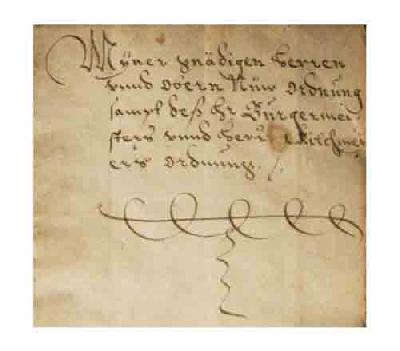 Myner gnädigen Herren
vnnd Obern Nüw Ordnung
sampt deß Hr Burgermei
sters vnnd Herr Kilchmei
ers Ordnung.